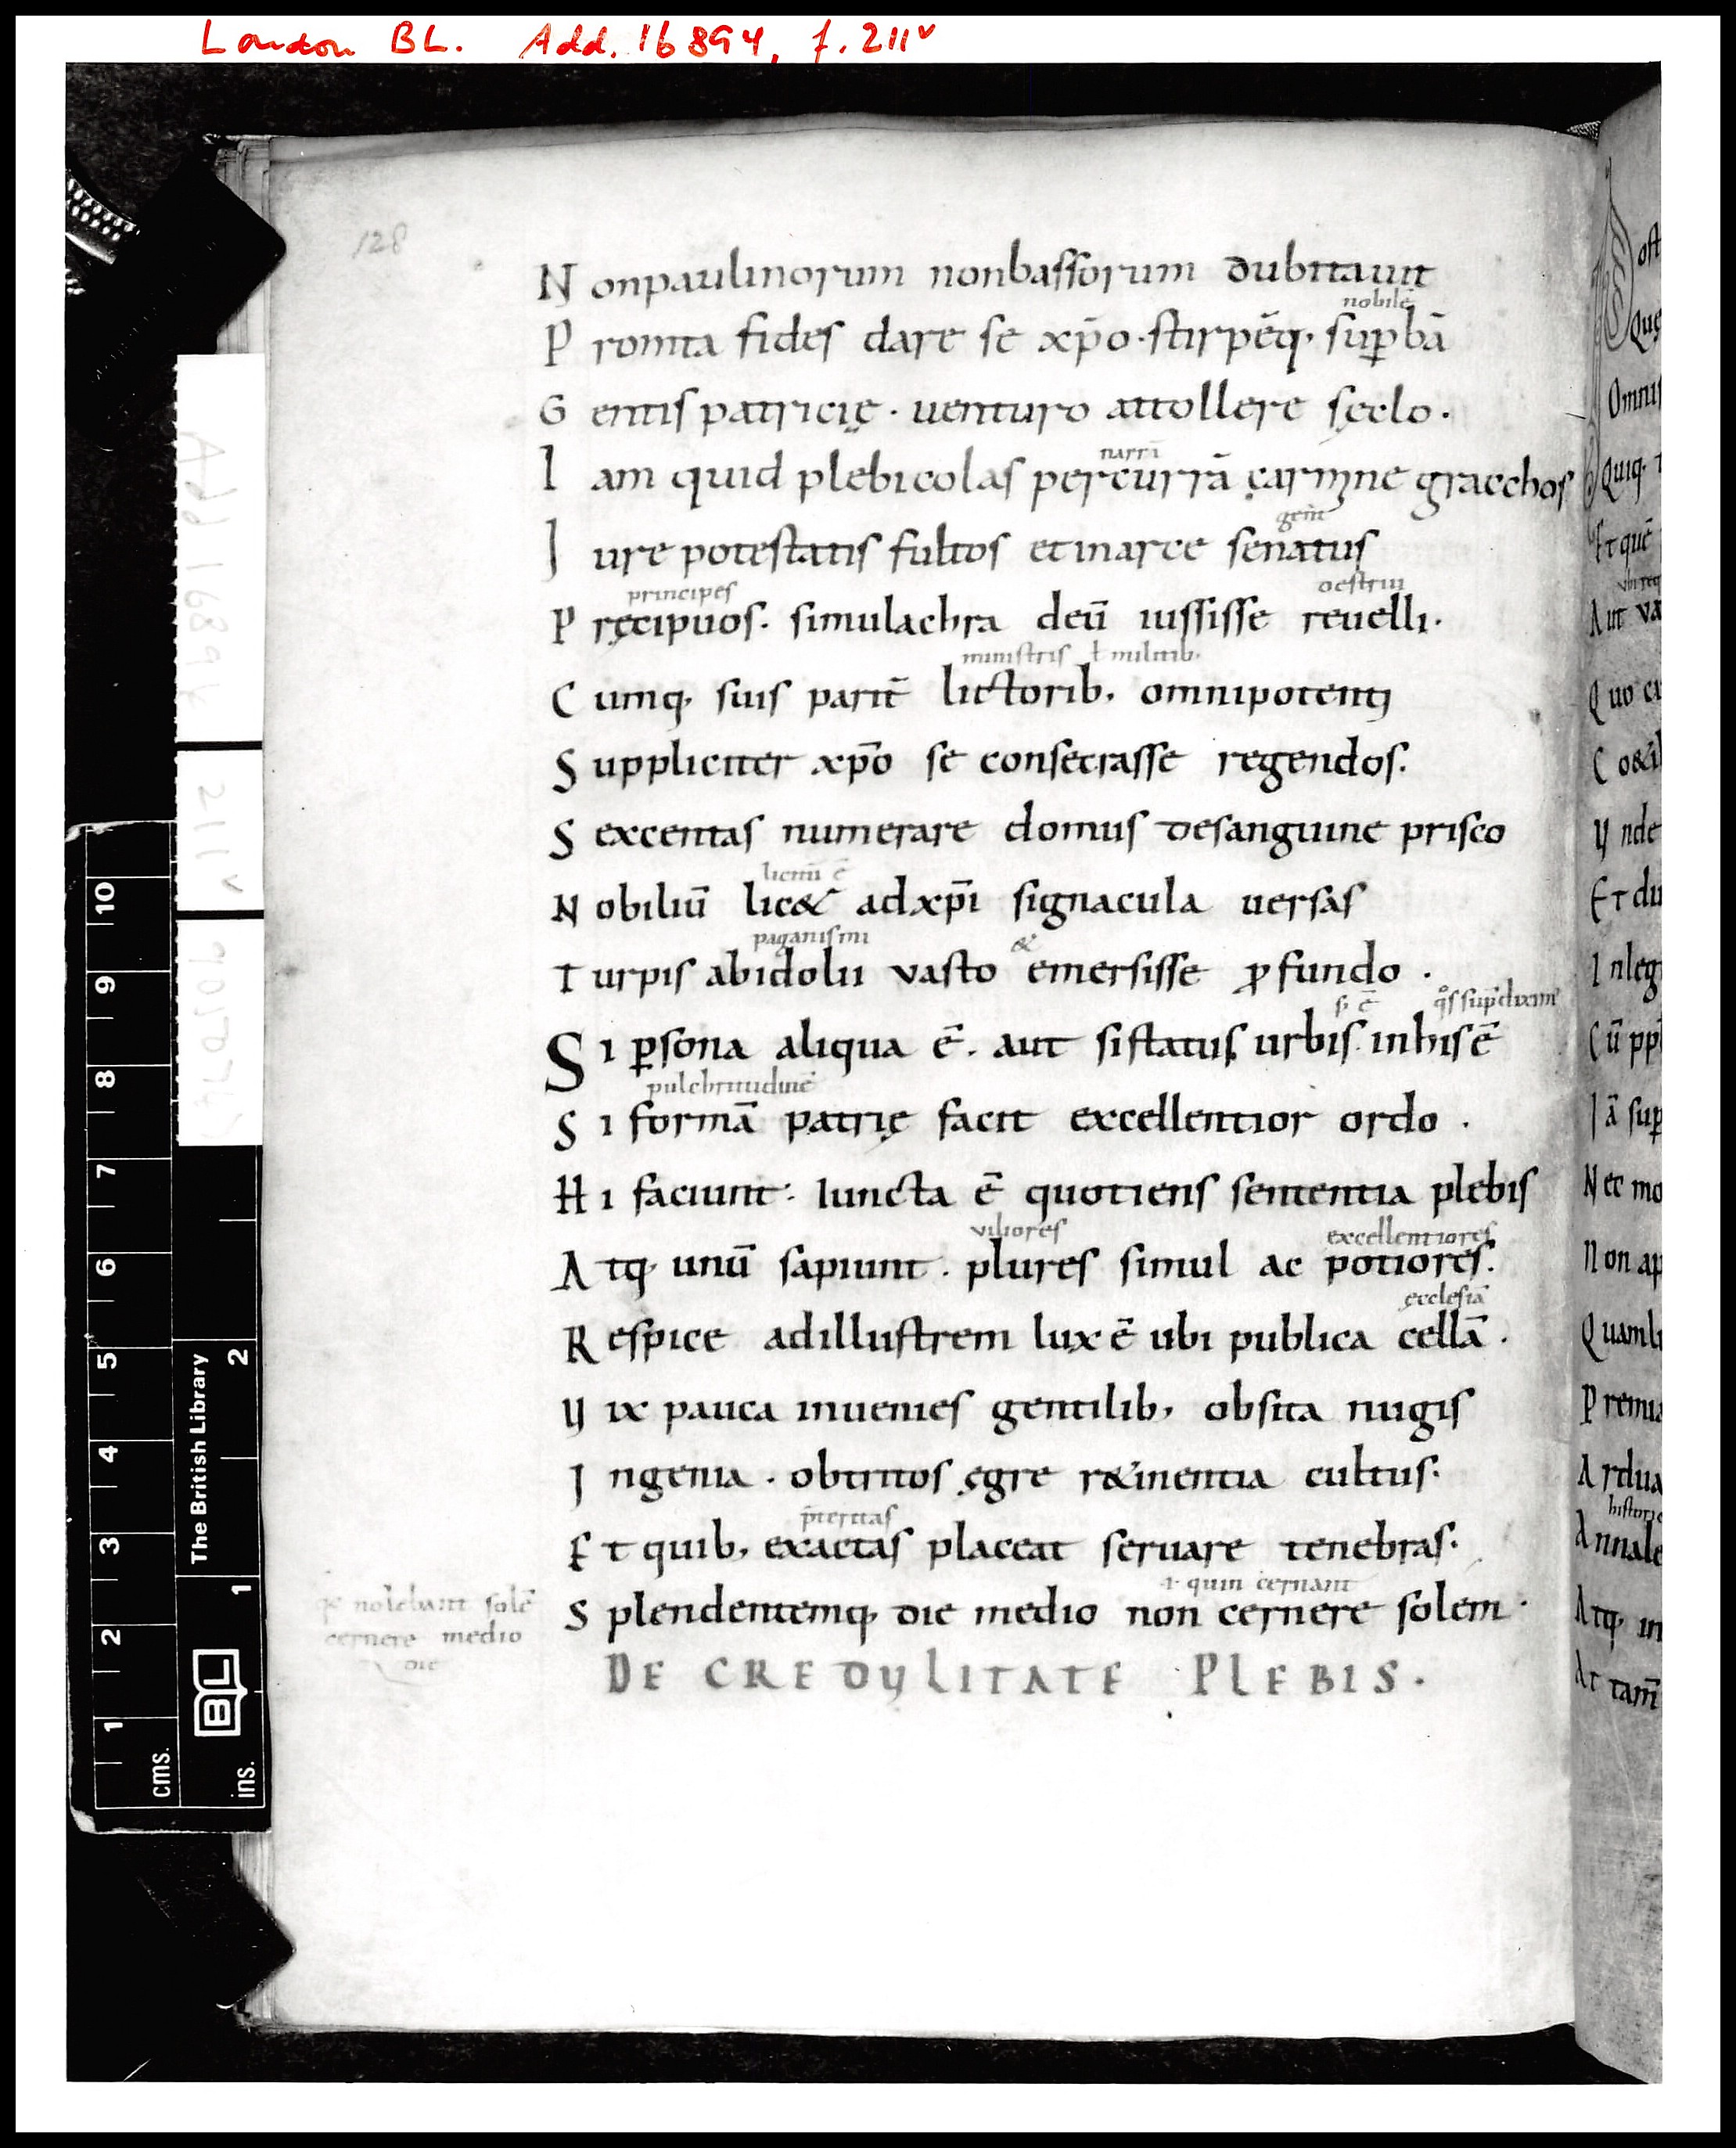 London BL. Add. 16894, f. 211v
128
N onpaulinorum nonbassorum dubitauit
nobilē
P romta fides dare se xp̄o· stirpēq· sup̱bā
G entis patricię · uenturo attollere sęclo ·
narrā
I am quid plebicolas percurrā çarmine gracchos
J ure potestatis fultos etinarce senatus
principes
P ręcipuos· simulachra deū iussisse reuelli·
ministris ł militib·
C umq· suis parit̄ lictorib· omnipotenti
S uppliciter xp̄o se consecrasse regendos·
S excentas numerare domus desanguine prisco
N obiliū lic& adxp̄i signacula uersas
paganismi &
T urpis abidolii vasto emersisse ꝓfundo ·
S i ꝑsona aliqua ē· aut sistatus urbis· inhis ē
pulchritudinē
S i formā patrię facit excellentior ordo ·
H i faciunt· Iuncta ē quotiens sententia plebis
viliores excellentiores
A tq· unū sapiunt · plures simul ac potiores·
ęcclesiā
R espice adillustrem lux ē ubi publica cellā ·
V ix pauca inuenies gentilib· obsita nugis
I ngenia · obtritos ęgre r&inentia cultus·
p̄teritas
E t quib· exactas placeat seruare tenebras·
quin cernant
S plendentemq· die medio non cernere solem ·
nolebant solē
cernere medio
die
DE CREDVLITATE PLEBIS ·
The British Library
BL
cms.
ins.
1 2 3 4 5 6 7 8 9 10
1 2